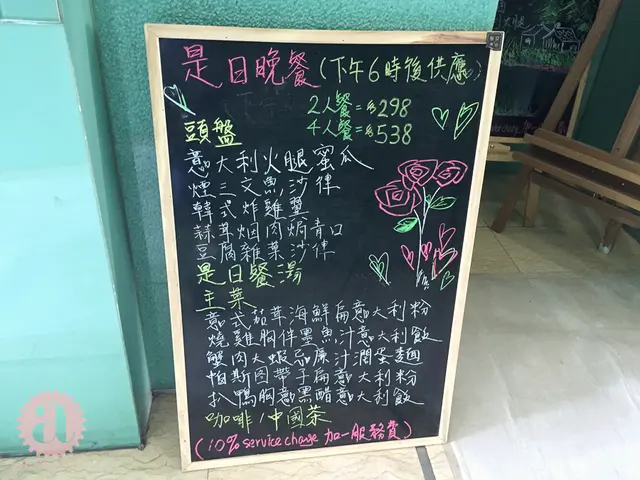 是日晚餐(下午6時後供應)
2人餐=$298
4人餐=$538
頭盤
意大利火腿蜜瓜
煙三文魚沙律
韓式炸雞翼
蒜茸烟肉焗青口
豆腐雜菜沙律
是日餐湯
主菜
意式茄茸海鮮扁意大利粉
燒雞胸伴墨魚汁意大利飯
蟹肉大蝦忌廉汁濶蛋麵
帕斯图帶子扁意大利粉
扒鴨胸意黑醋意大利飯
咖啡/中國茶
(10% service charge 加一服務費)